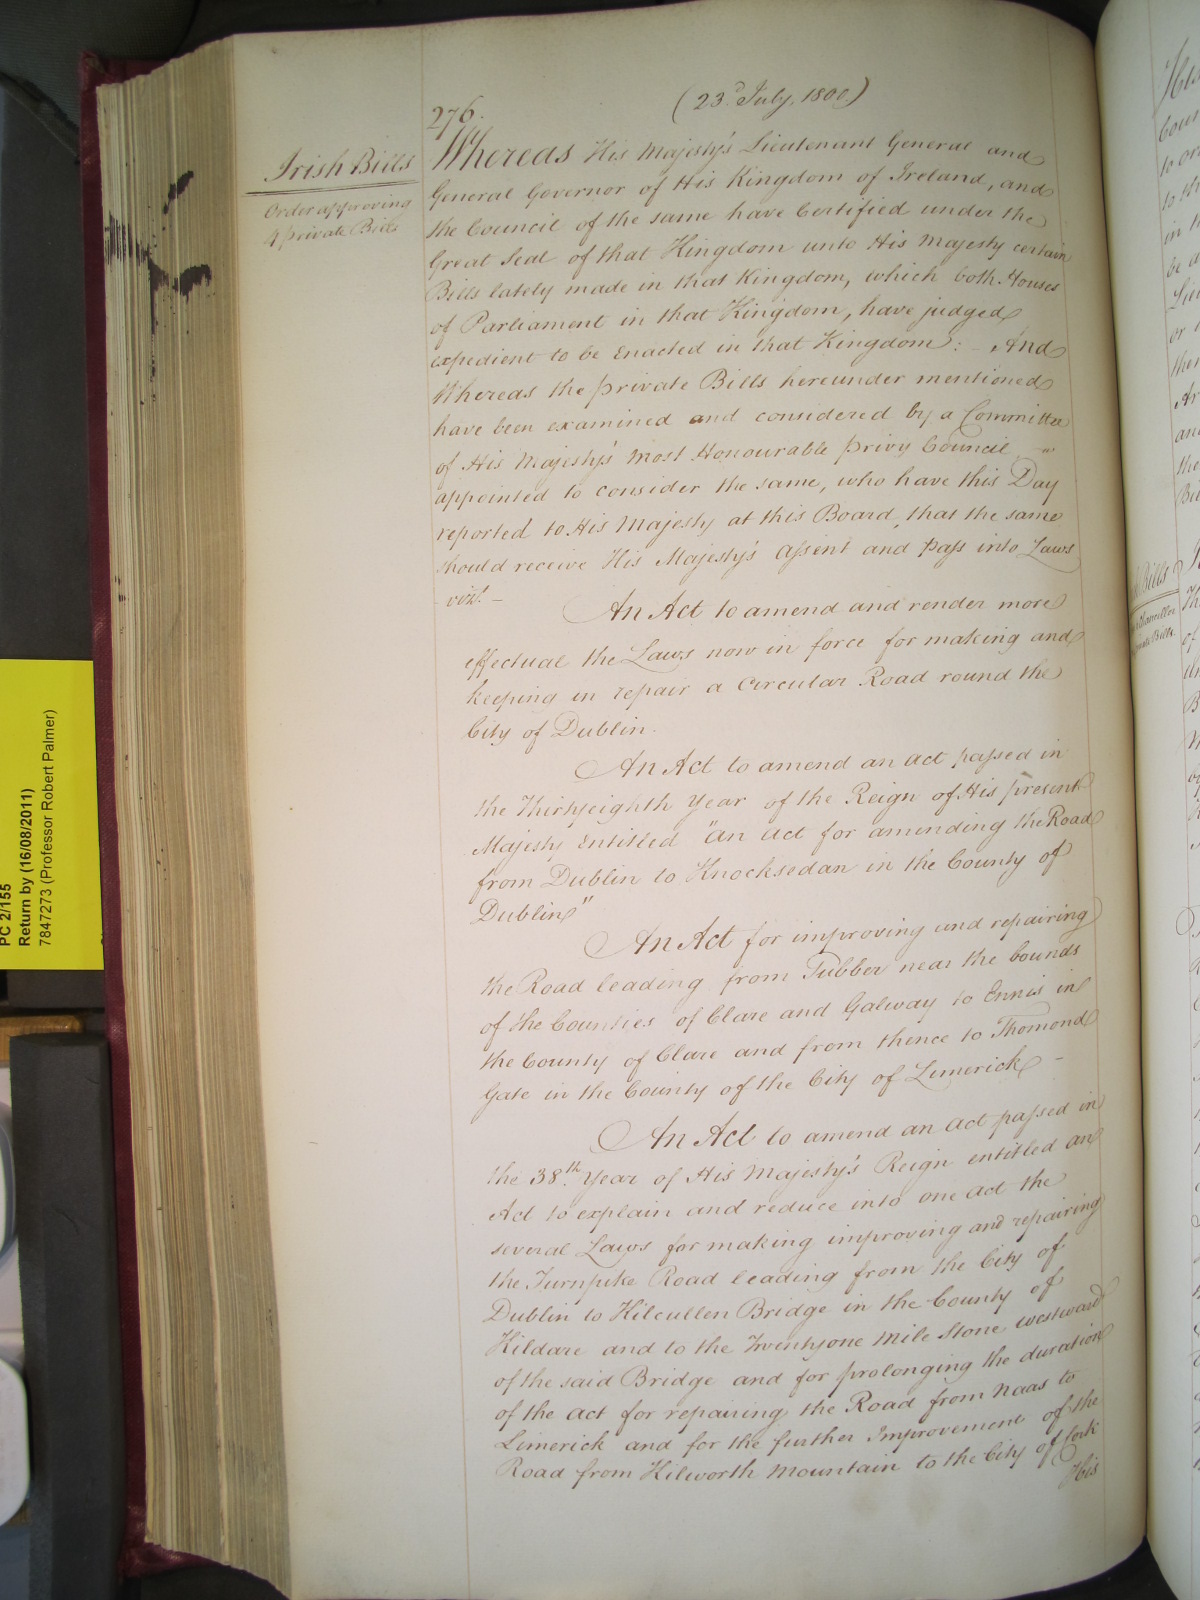 276.
(23.d July, 1800)
Irish Bills
Order approving
4 private Bills
Whereas His Majesty's Lieutenant General and
General Governor of His Kingdom of Ireland, and
the Council of the same have Certified under the
Great Seal of that Kingdom unto His Majesty certain
Bills lately made in that Kingdom, which both Houses
of Parliament in that Kingdom, have judged
expedient to be Enacted in that Kingdom: - And
Whereas the private Bills hereunder mentioned
have been examined and considered by a Committee
of His Majesty's most Honourable Privy Council
appointed to consider the same, who have this Day
reported to His Majesty at this Board, that the same
should receive His Majesty's Assent and Pass into Laws
- vizt. -
An Act to amend and render more
effectual the Laws now in force for making and
keeping in repair a Circular Road round the
City of Dublin.
An Act to amend an Act passed in
the Thirtyeighth Year of the Reign of His present
Majesty Entitled "An Act for amending the Road
from Dublin to Knocksedan in the County of
Dublin"
An Act for improving and repairing
the Road leading from Tubber near the bounds
of the Counties of Clare and Galway to Ennis in
the County of Clare and from thence to Thomond
Gate in the County of the City of Limerick -
An Act to amend an Act passed in
the 38.th Year of His Majesty's Reign entitled an
Act to explain and reduce into one Act the
several Laws for making improving and repairing
the Turnpike Road leading from the City of
Dublin to Kilcullen Bridge in the County of
Kildare and to the Twentyone Mile Stone westward
of the said Bridge and for prolonging the duration
of the Act for repairing the Road from Naas to
Limerick and for the further Improvement of the
Road from Kilworth Mountain to the City of Cork
His
PC 2/155
Return by (16/08/2011)
7847273 (Professor Robert Palmer)